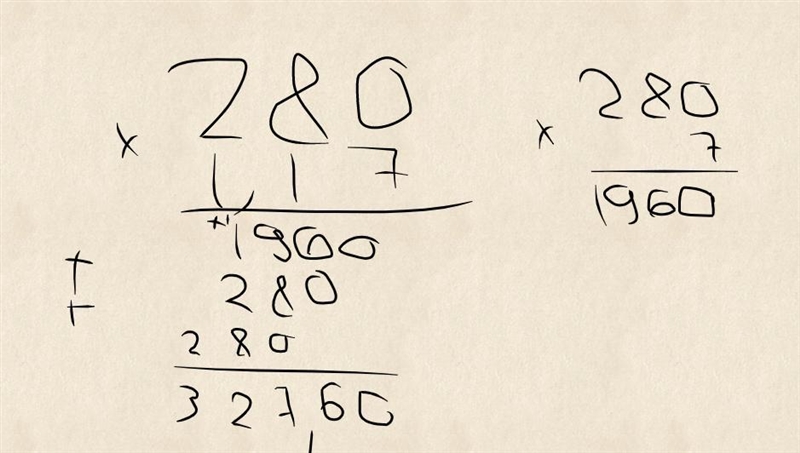 280
x 117
+1
1960
+ 280
+ 280
32760
1
280
x 7
1960